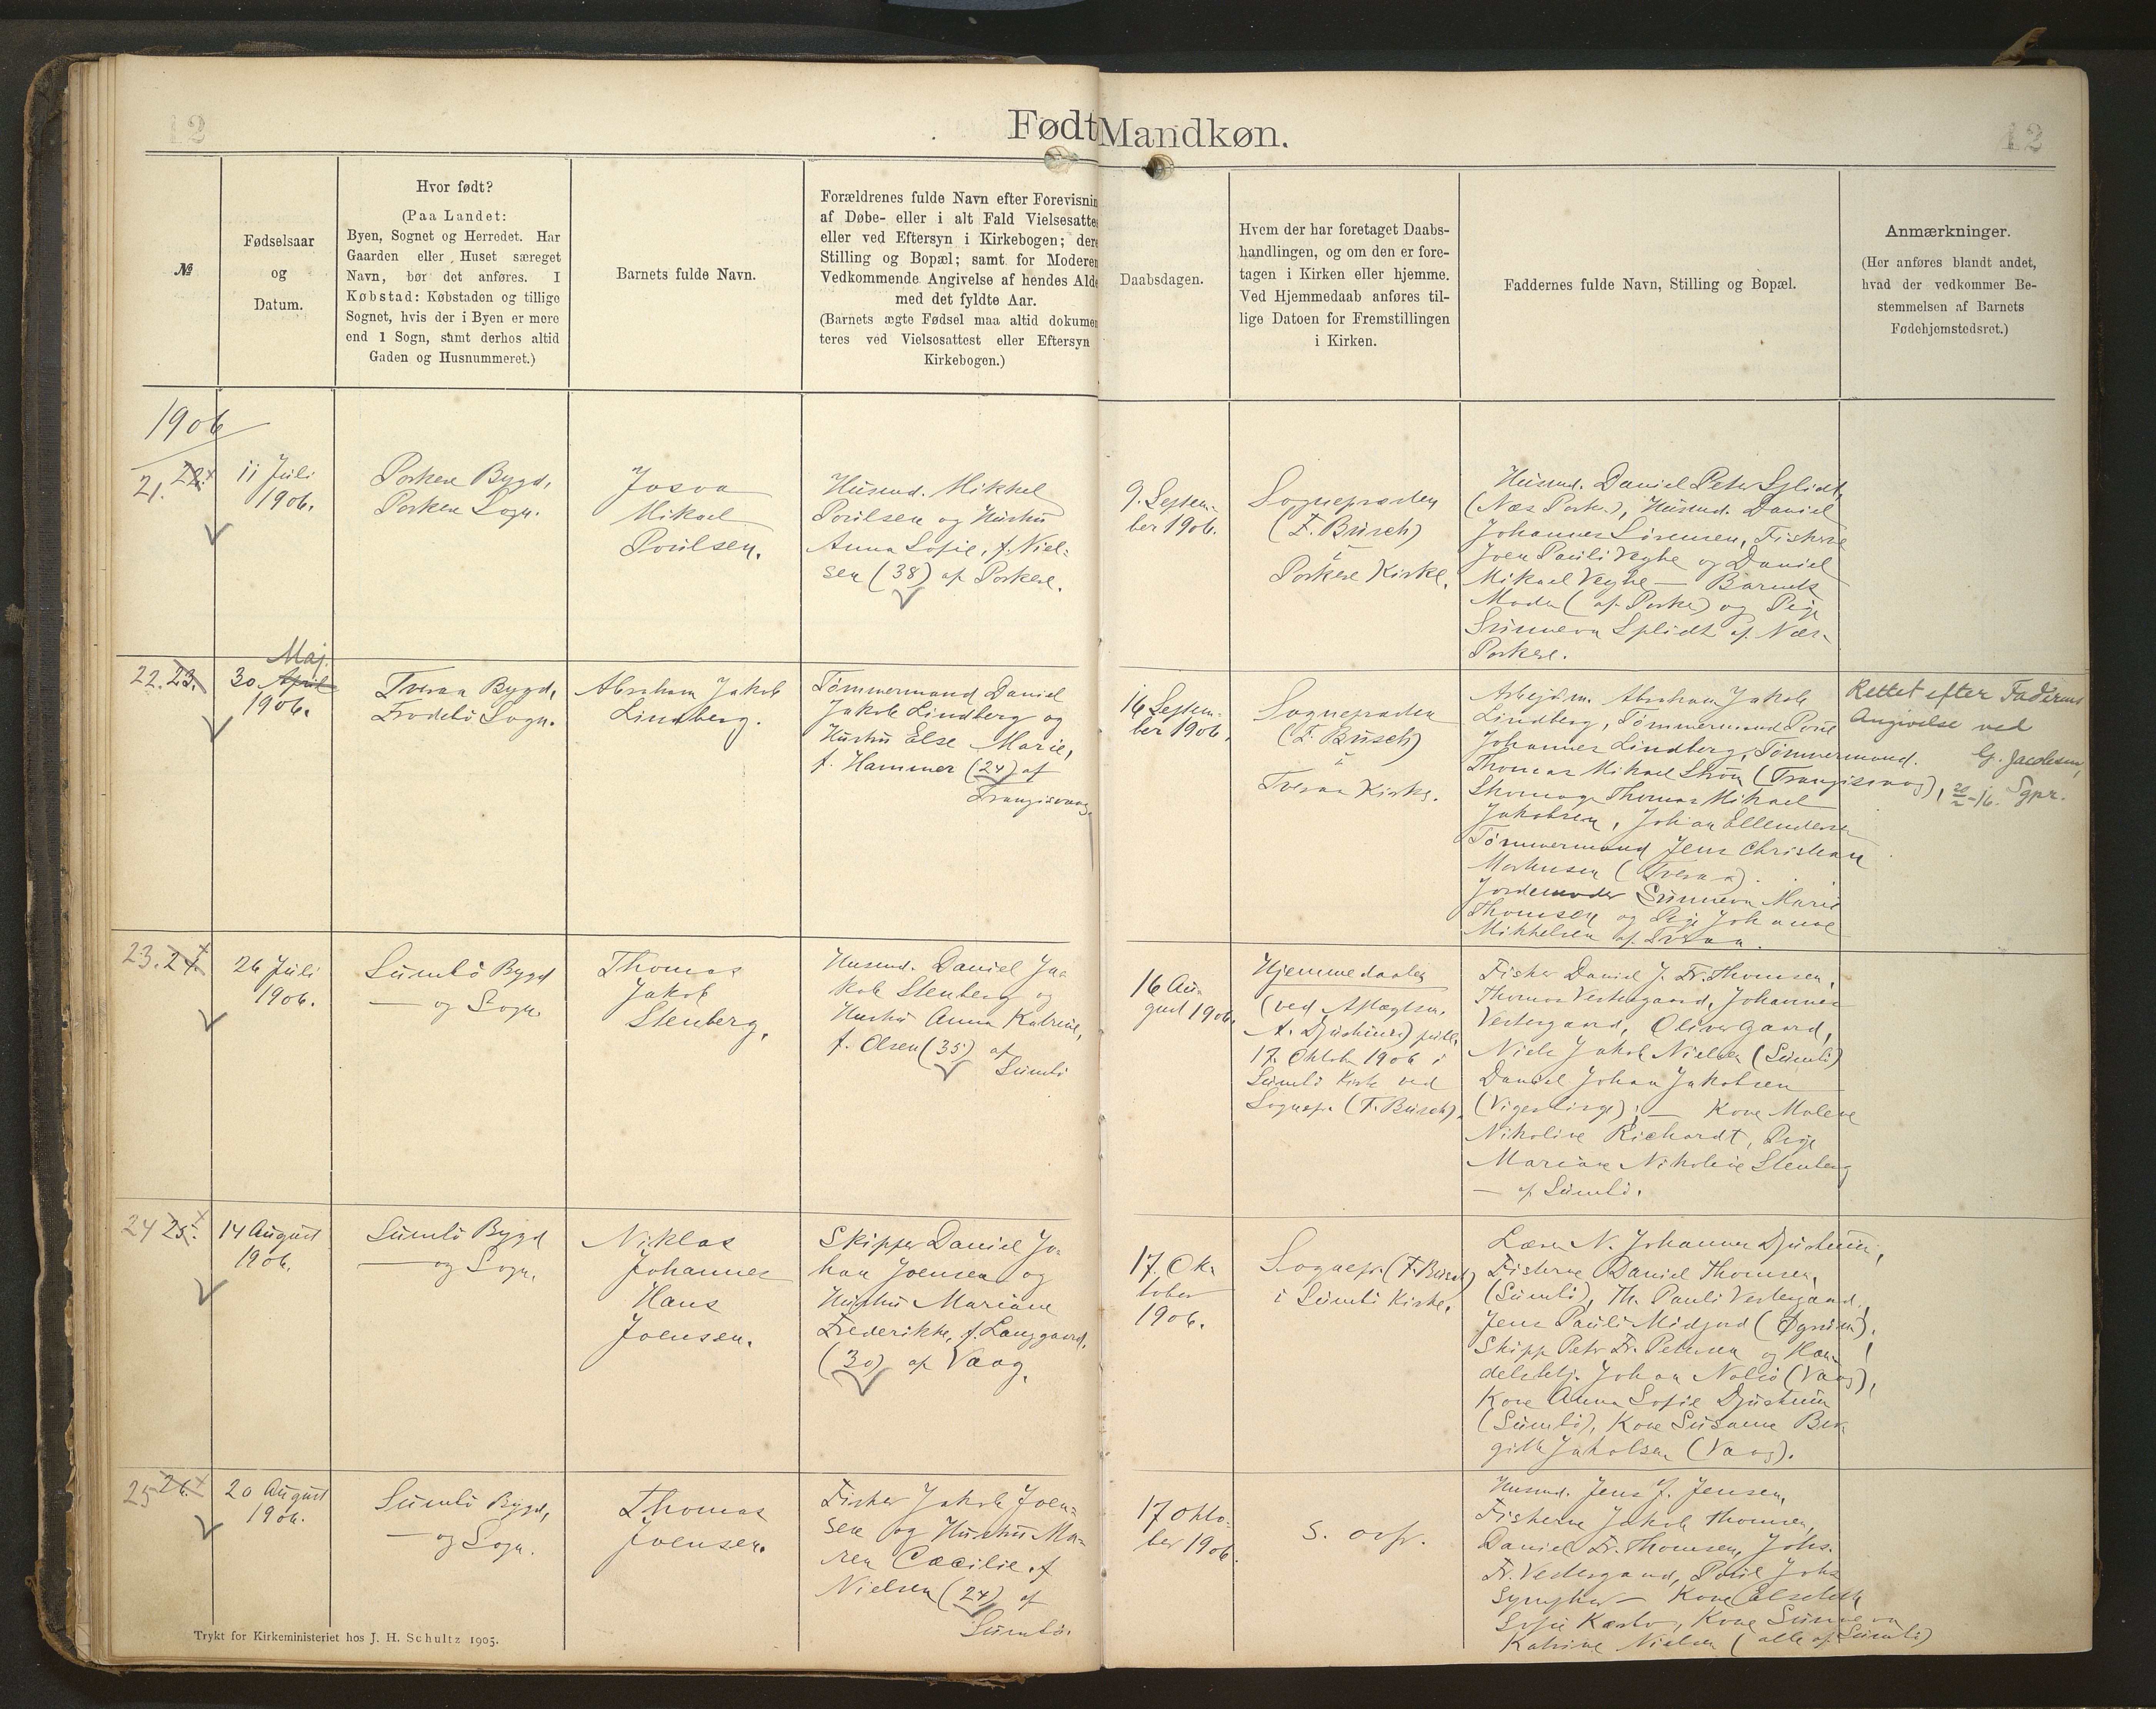 12
Født Mandkøn.
12
№
Fødselsaar
og
Datum.
Hvor født?
(Paa Landet:
Byen, Sognet og Herredet. Har
Gaarden eller Huset særeget
Navn, bør det anføres. I
Købstad: Købstaden og tillige
Sognet, hvis der i Byen er mere
end 1 Sogn, samt derhos altid
Gaden og Husnummeret.)
Barnets fulde Navn.
Forældrenes fulde Navn efter Forevisnin
af Døbe- eller i alt Fald Vielsesattes
eller ved Eftersyn i Kirkebogen; dere
Stilling og Bopæl; samt for Moderen
Vedkommende Angivelse af hendes Alde
med det fyldte Aar.
(Barnets ægte Fødsel maa altid dokumen
teres ved Vielsesattest eller Eftersyn
Kirkebogen.)
Daabsdagen.
Hvem der har foretaget Daabs-
handlingen, og om den er fore-
tagen i Kirken eller hjemme.
Ved Hjemmedaab anføres til-
lige Datoen for Fremstillingen
i Kirken.
Faddernes fulde Navn, Stilling og Bopæl.
Anmærkninger.
(Her anføres blandt andet,
hvad der vedkommer Be-
stemmelsen af Barnets
Fødehjemstedsret.)
1906
21. 22.
11 Juli
1906.
Porkere Bygd,
Porkere Sogn.
Josva
Mikael
Poulsen.
Husmd. Mikkel
Poulsen og Hustru
Anna Sofie, f. Niel-
sen (38) af Porkere.
9. Septem-
ber 1906.
Sognepræsten
(F. Busch)
i
Porkere Kirke.
Husmd. Daniel Peter Splidt,
(Næs Porke.), Husmd. Daniel
Johannes Sörensen, Fiskere
Joen Pauli Veyhe og Daniel
Mikael Veyhe — Barnets
Moder (af Porke) og Pige
Sunneva Splidt af Næs-
Porkere.
22. 23.
Maj
30 April
1906.
Tveraa Bygd,
Frodebö Sogn.
Abraham Jakob
Lindberg.
Tömmermand Daniel
Jakob Lindberg og
Hustru Else Marie,
f. Hammer (24) af
Trangisvaag.
16 Septem-
ber 1906.
Sognepræsten
(F. Busch)
i
Tveraa Kirke.
Arbejdsm. Abraham Jakob
Lindberg, Tömmermand Poul
Johannes Lindberg, Tömmermand.
Thomas Mikael Ström (Trangisvaag),
Skomager Thomas Mikael
Jakobsen, Johan Ellendersen
Tömmermand Jens Christian
Mortensen (Tveraa).
Jordemoder Sunneva Marie
Thomsen og Pige Johanne
Mikkelsen af Tveraa.
Rettet efter Faderens
Angivelse ved
G. Jacobsen,
20/2-16. Sgpr.
23. 24.
26 Juli
1906.
Sumbö Bygd
— og Sogn.
Thomas
Jakob
Stenberg.
Husmd. Daniel Ja-
kob Stenberg og
Hustru Anna Katrine,
f. Olsen (35) af
Sumbö
16 Au-
gust 1906.
Hjemmedaaben
(ved
17. Oktober 1906 i
Sumbö Kirke ved
Sognepr. (F. Busch).
Fisker Daniel J. Fr. Thomsen,
Thomas Vestergaard, Johannes
Vestergaard, Oliver Gaard,
Niels Jakob Nielsen (Sumbö)
Daniel Johan Jakobsen
— Kone Malene
Nikoline Richardt, Pige
Mariane Nikoline Stenberg
— af Sumbö.
24 25.
14 August
1906.
Sumbö Bygd
— og Sogn.
Niklas
Johannes
Hans
Joensen.
Skipper Daniel Jo-
han Joensen og
Hustru Mariane
Frederikke, f. Langgaard,
(30) af Vaag.
17. Ok-
tober
1906.
Sognepr. (F. Busch)
i Sumbö Kirke.
Lærer N. Johannes Djurhuus,
Fiskerne Daniel Thomsen,
(Sumbö), Th. Pauli Vestergaard,
Jens Pauli Midjord (Øgnsum),
Skipp. Petr Fr. Petersen og Han-
delsbetj. Johan Nolsö (Vaag),
Kone Anna Sofie Djurhuus
(Sumbö), Kone Susanne Ber-
gitte Jakobsen (Vaag).
25 26.
20 August
1906.
Sumbö Bygd,
— og Sogn.
Thomas
Joensen.
Fisker Jakob Joen-
sen og Hustru Ma-
ren Cæcilie, f.
Nielsen (24) af
Sumbö.
17 Okto-
ber 1906.
s. ovf.
Husmd. Jens J. Jensen,
Fiskerne Jakob Thomsen,
Daniel Fr. Thomsen, Johs.
Fr. Vestergaard, Poul Johs
— Kone Elsebeth
Sofie Kone Sunneva
Katrine Nielsen (alle af Sumbö)
Trykt for Kirkeministeriet hos J. H. Schultz 1905.